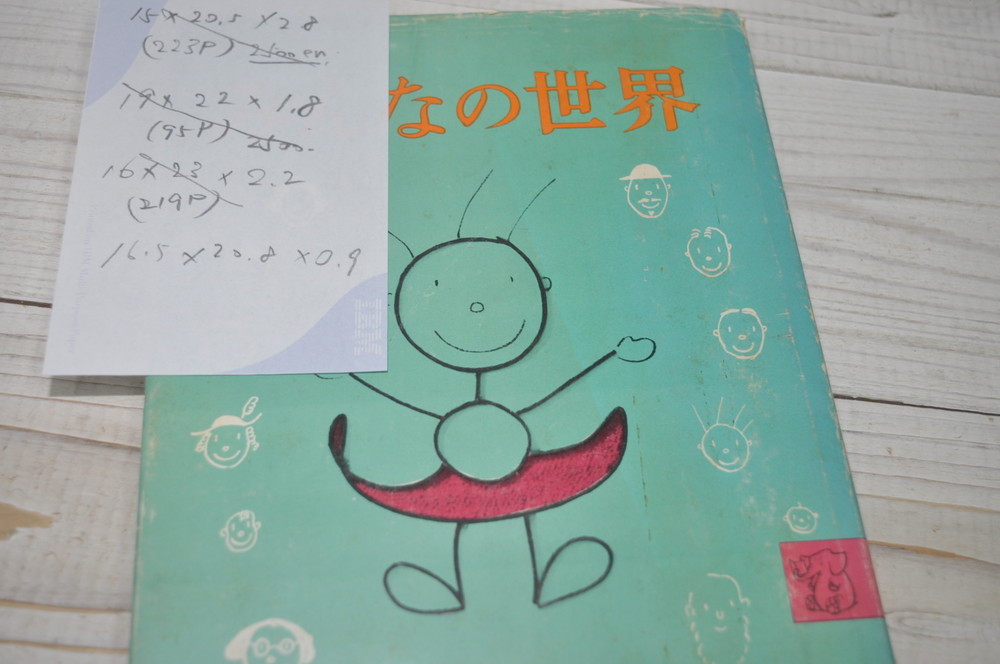 15×20.5×2.8
(223P) 2500en.
19×22×1.8
(95P) 2500.
16×23×2.2
(219P)
16.5×20.8×0.9
なの世界